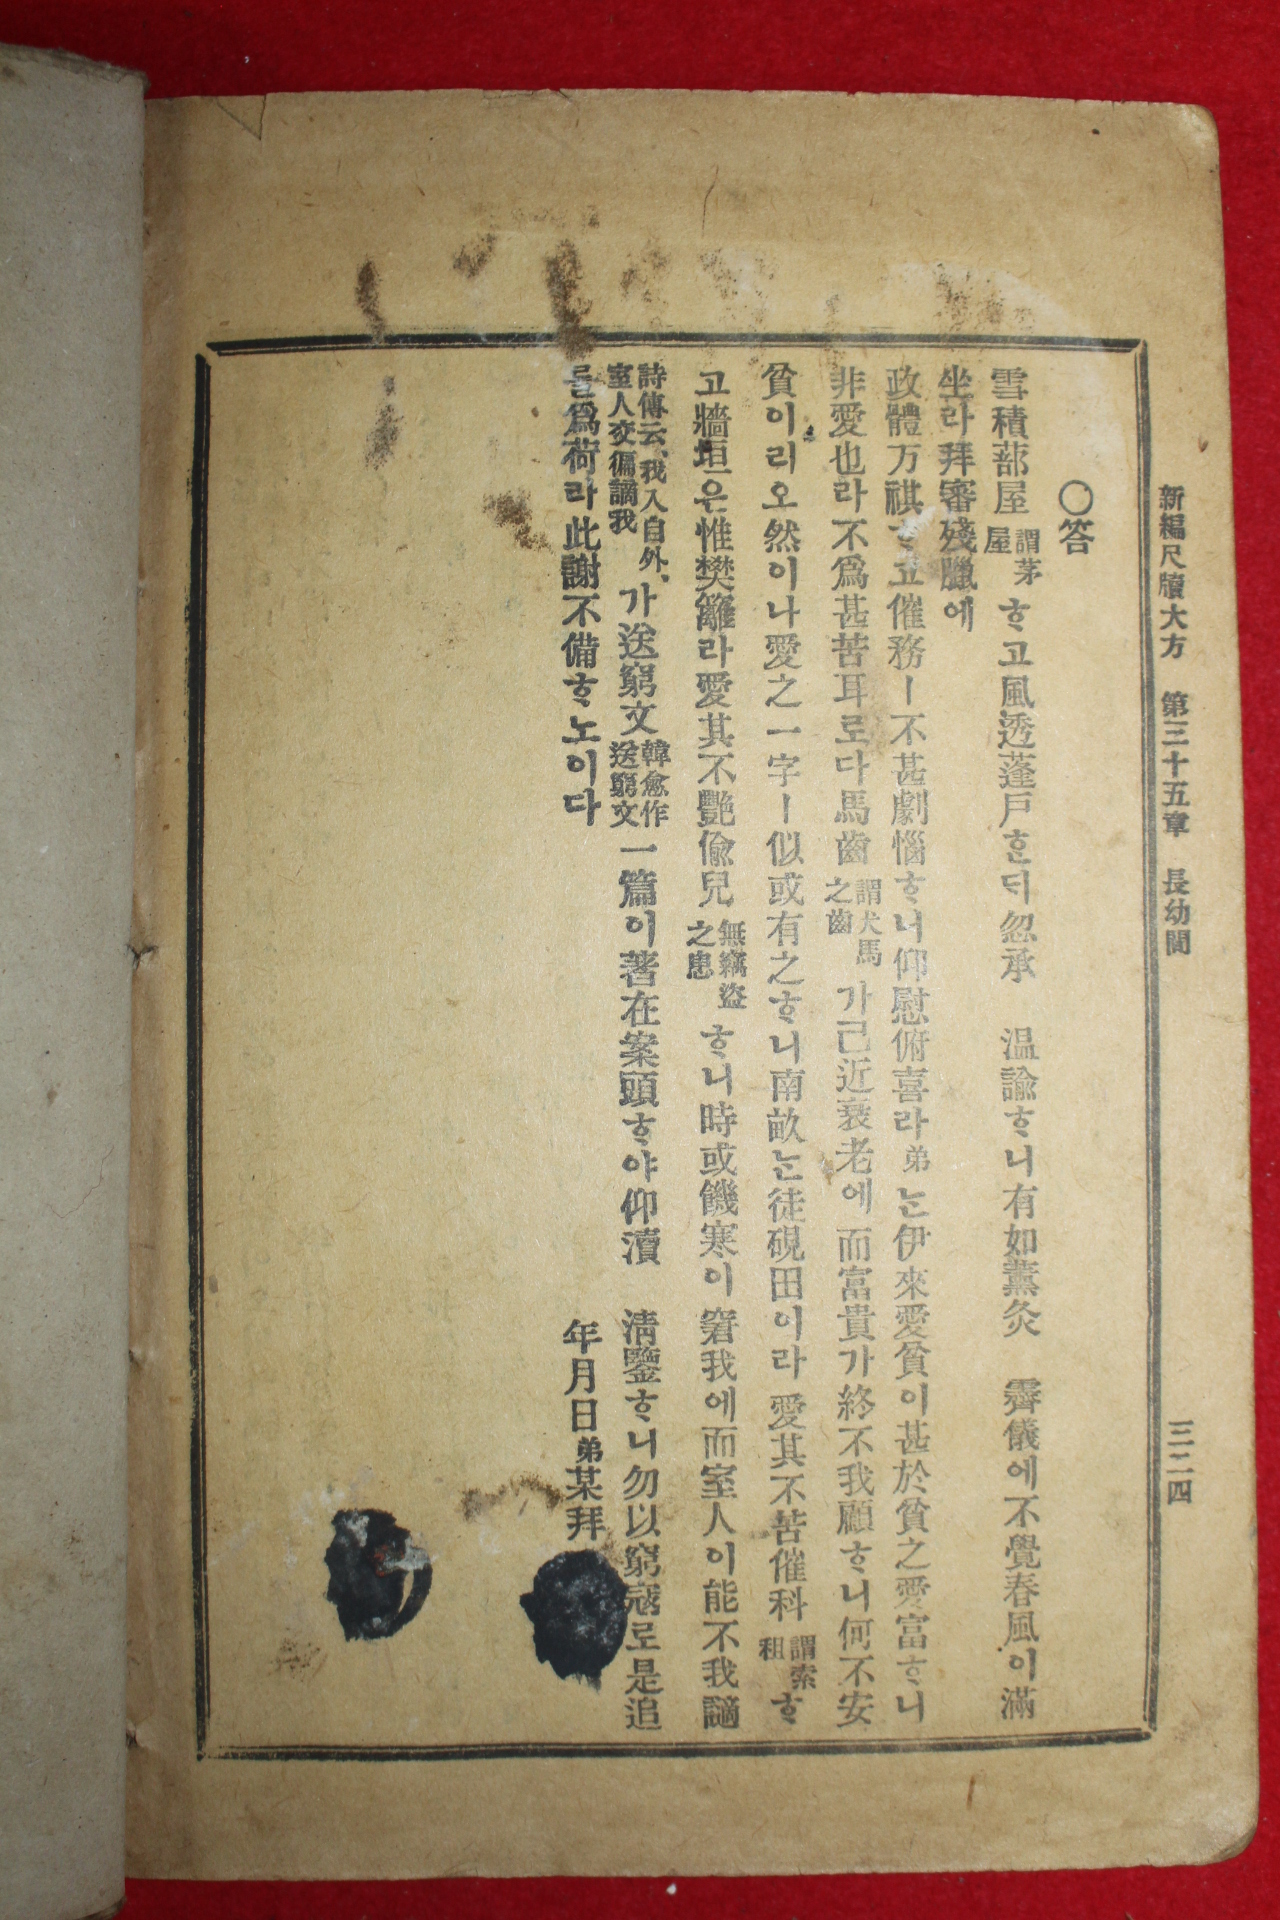 新編尺牘大方 第三十五章 長幼間 三二四
○答
雪積蔀屋 謂茅屋 ᄒᆞ고風透蓬戶ᄒᆞᆫ데忽承 温諭ᄒᆞ니有如薰灸 霽儀에不覺春風이滿
坐라拜審殘臘에
政體万祺ᄒᆞ고催務ㅣ不甚劇惱ᄒᆞ니仰慰俯喜라弟ᄂᆞᆫ伊來愛貧이甚於貧之愛富ᄒᆞ니
非愛也라不爲甚苦耳로다馬齒 謂犬馬之齒 가已近衰老에而富貴가終不我顧ᄒᆞ니何不安
貧이리오然이나愛之一字ㅣ似或有之ᄒᆞ니南畝ᄂᆞᆫ徒硯田이라愛其不苦催科 謂索租 ᄒᆞ
고牆垣은惟樊籬라愛其不艷偸兒 無竊盜之患 ᄒᆞ니時或饑寒이窘我에而室人이能不我謫
詩傳云、我入自外、室人交徧謫我 가送窮文 韓愈作送窮文 一篇이著在案頭ᄒᆞ야仰瀆 淸鑒ᄒᆞ니勿以窮寇로是追
를爲荷라此謝不備ᄒᆞ노이다 年月日弟某拜